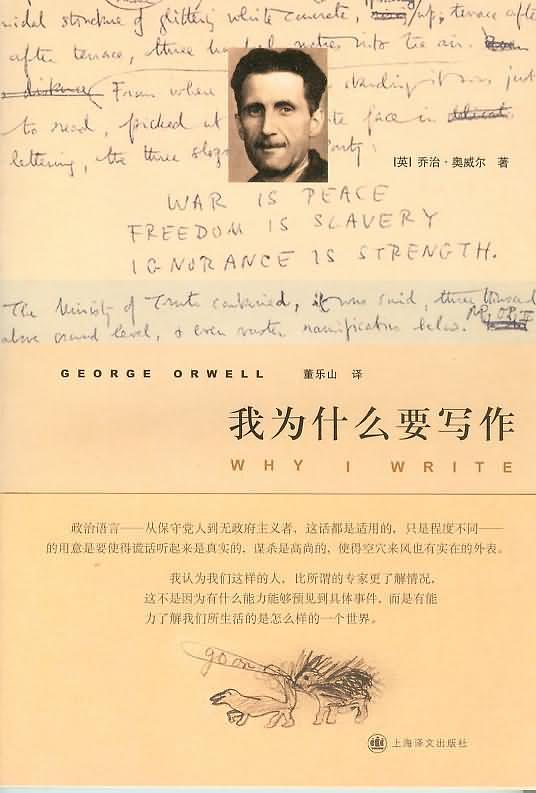 midal structure of glittering white concrete,
up, terrace after
after terrace, three hundred metres into the air.
From where standing it was just
to read, picked out face in
lettering, the three slogans Party:
[英] 乔治·奥威尔 著
WAR IS PEACE
FREEDOM IS SLAVERY
IGNORANCE IS STRENGTH.
The Ministry of Truth contained, it was said, three thousand
above ground level, & even vaster ramifications below.
GEORGE ORWELL 董乐山 译
我为什么要写作
WHY I WRITE
政治语言——从保守党人到无政府主义者，这话都是适用的，只是程度不同——
的用意是要使得谎话听起来是真实的，谋杀是高尚的，使得空穴来风也有实在的外表。
我认为我们这样的人，比所谓的专家更了解情况，
这不是因为有什么能力能够预见到具体事件，而是有能
力了解我们所生活的是怎么样的一个世界。
上海译文出版社